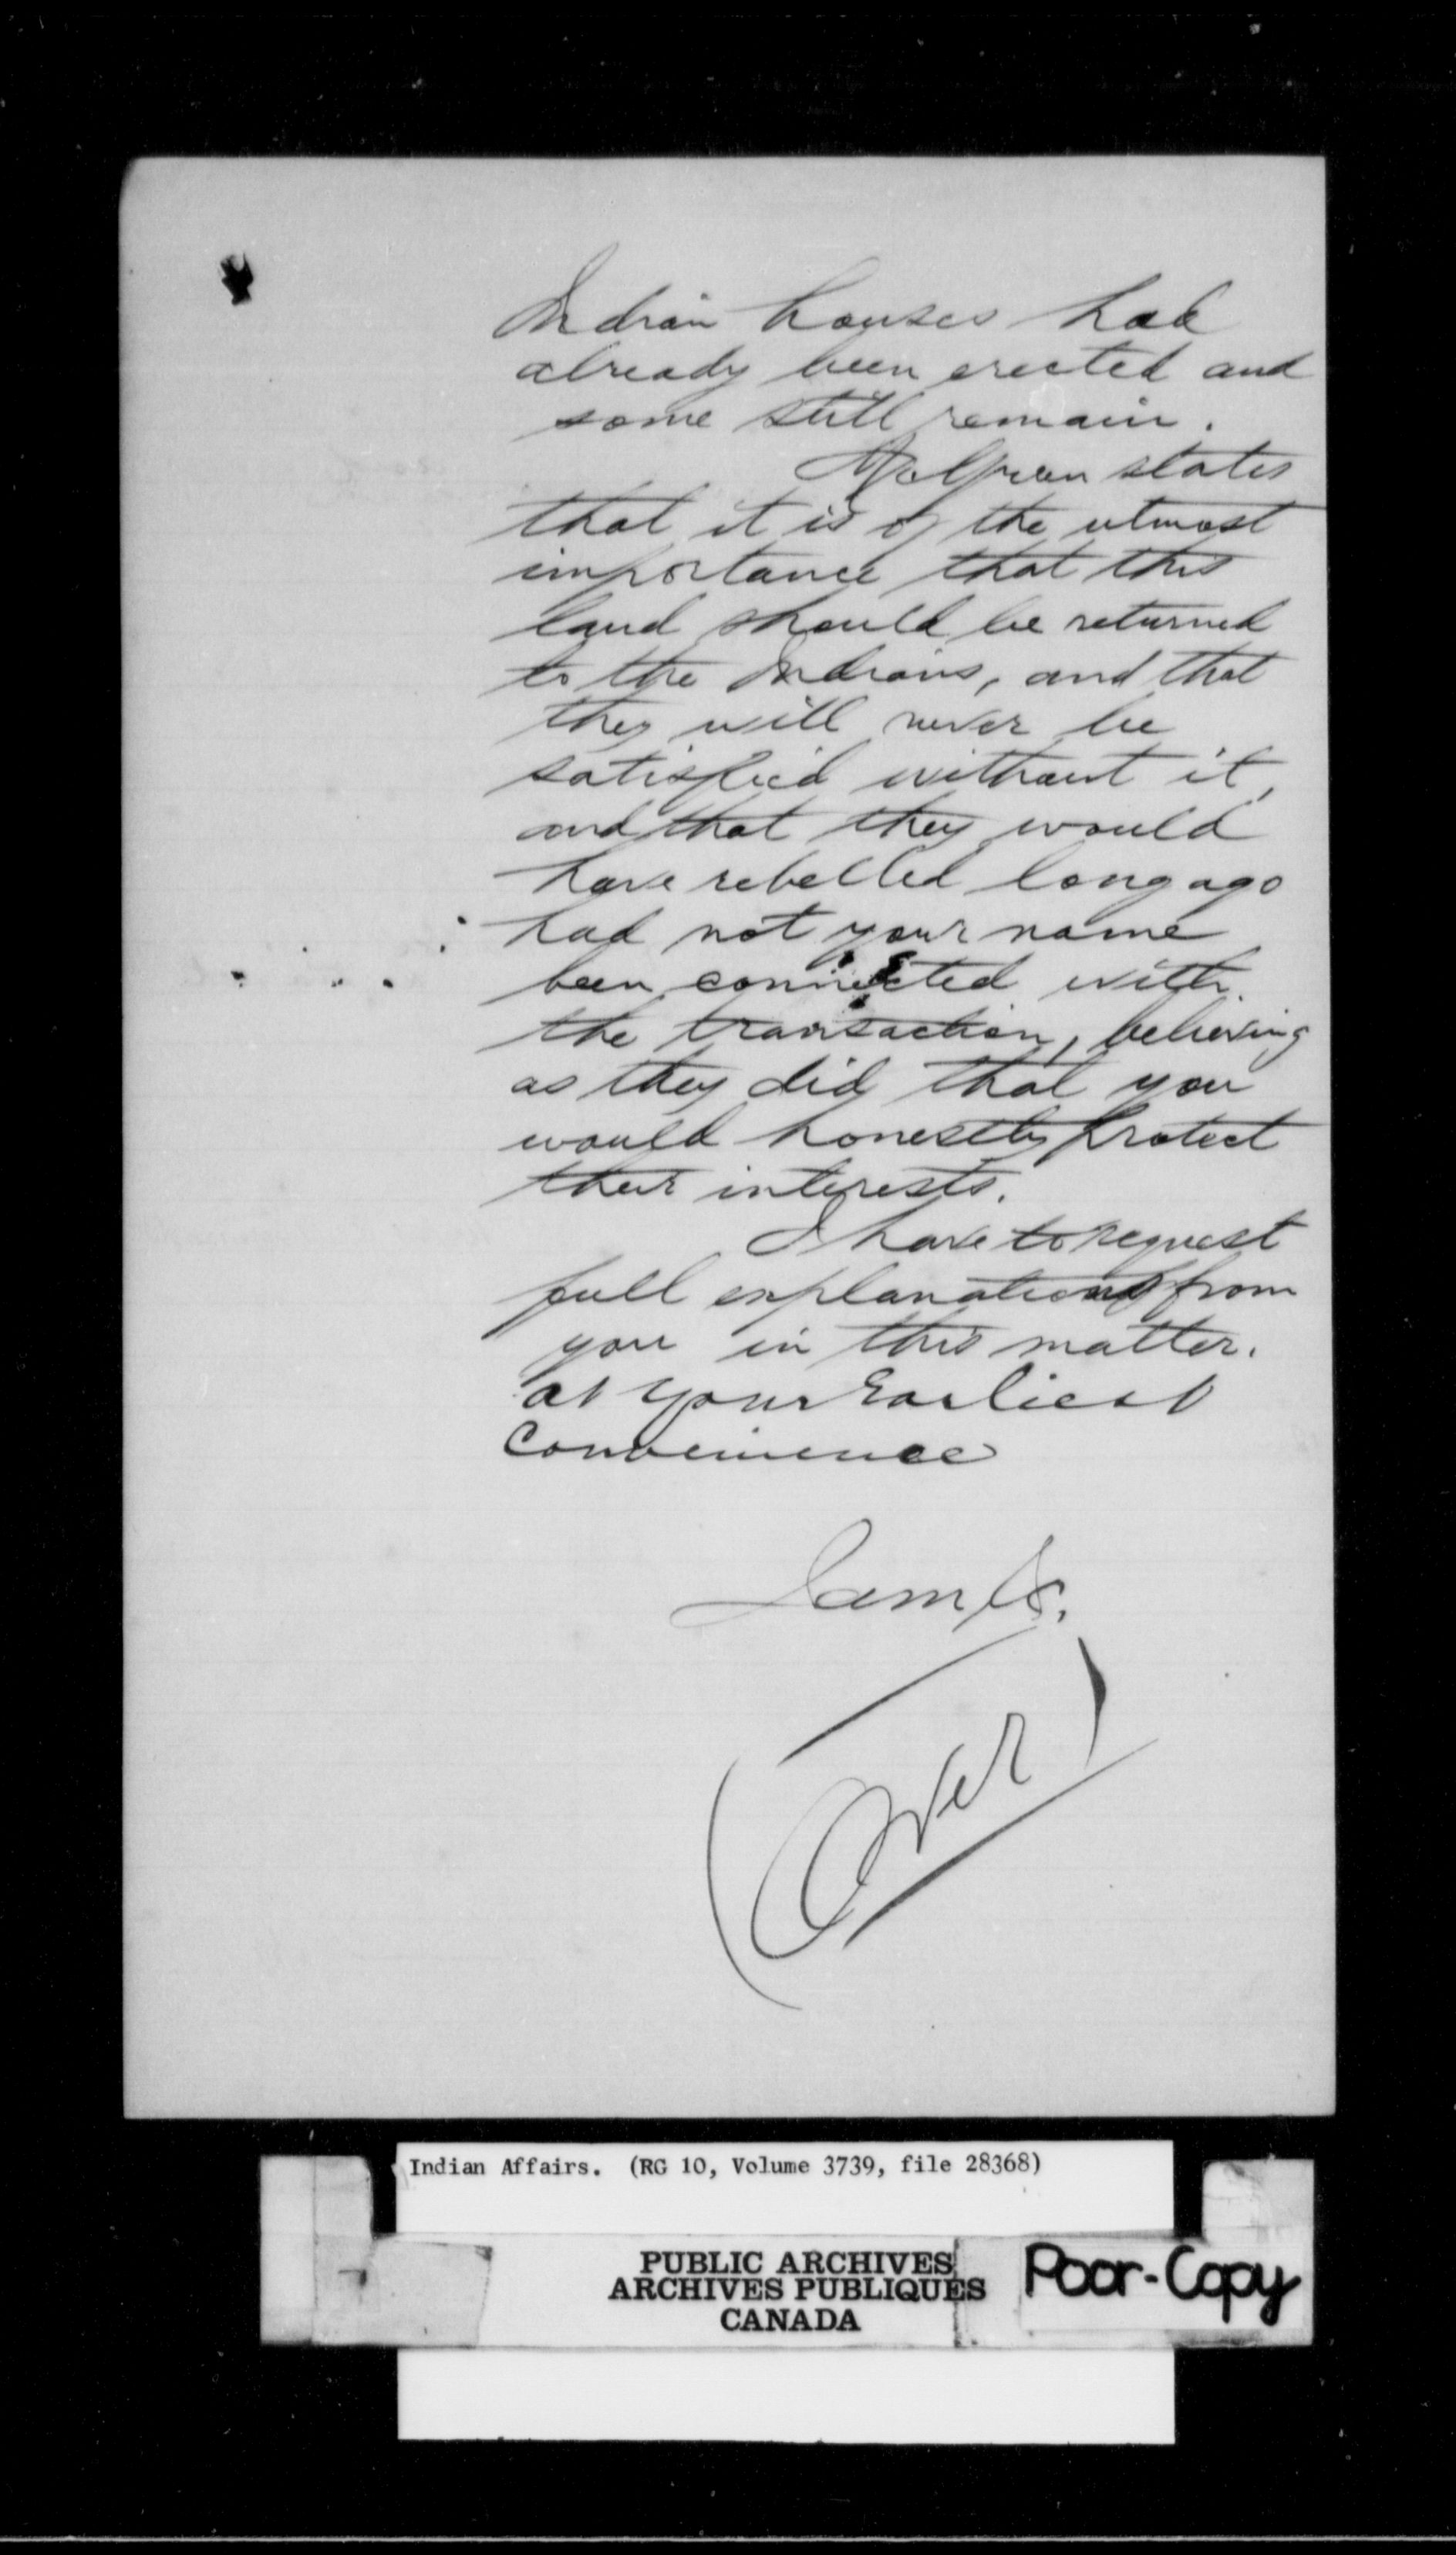 Indian houses had
already been erected and
some still remain.
states
that it is of the utmost
importance that this
land should be returned
to the Indians, and that
they will never be
satisfied without it,
and that they would
have rebelled long ago
had not your name
been connected with
the transaction, believing
as they did that you
would honestly protect
their interests.
I have to request
full explanations from
you in this matter.
at your Earliest
Convenience
I am &c.
(Over)
Indian Affairs. (RG 10, Volume 3739, file 28368)
PUBLIC ARCHIVES
ARCHIVES PUBLIQUES
CANADA
Poor-Copy